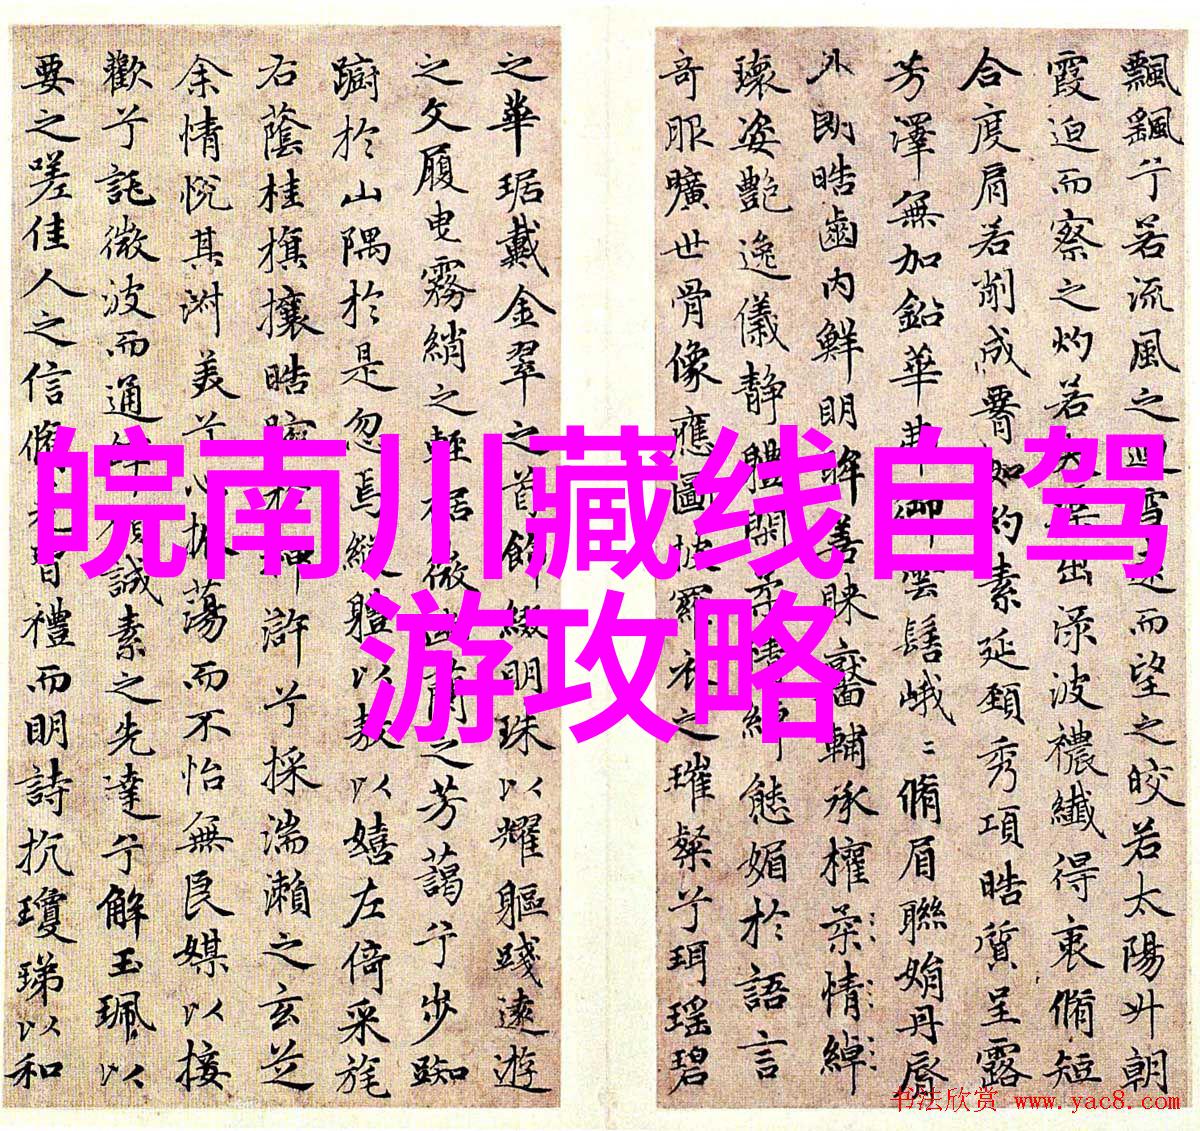 飄飖兮若流風之迴雪遠而望之皎若太陽升朝
霞迫而察之灼若芙蕖出淥波襛纖得衷脩短
合度肩若削成腰如約素延頸秀項皓質呈露
芳澤無加鉛華弗御雲髻峨〻脩眉聯娟丹脣
外朗皓齒内鮮明眸善睞靨輔承權柔情綽
瓌姿艷逸儀静體閑柔情綽態媚於語言
奇服曠世骨像應圖披羅衣之璀粲兮珥瑶碧
之華琚戴金翠之首飾綴明珠以耀軀踐遠遊
之文履曳霧綃之輕裾微幽蘭之芳藹兮步踟
蹰於山隅於是忽焉縱軆以敖以嬉左倚采旄
右蔭桂旗攘皓腕於神滸兮採湍瀨之玄芝
余情悅其淑美兮心振蕩而不怡無良媒以接
歡兮託微波而通誠素之先達兮解玉珮以
要之嗟佳人之信脩羌習禮而明詩抗瓊珶以和
皖南川藏线自驾
游攻略
书法欣赏 www.yac8.com